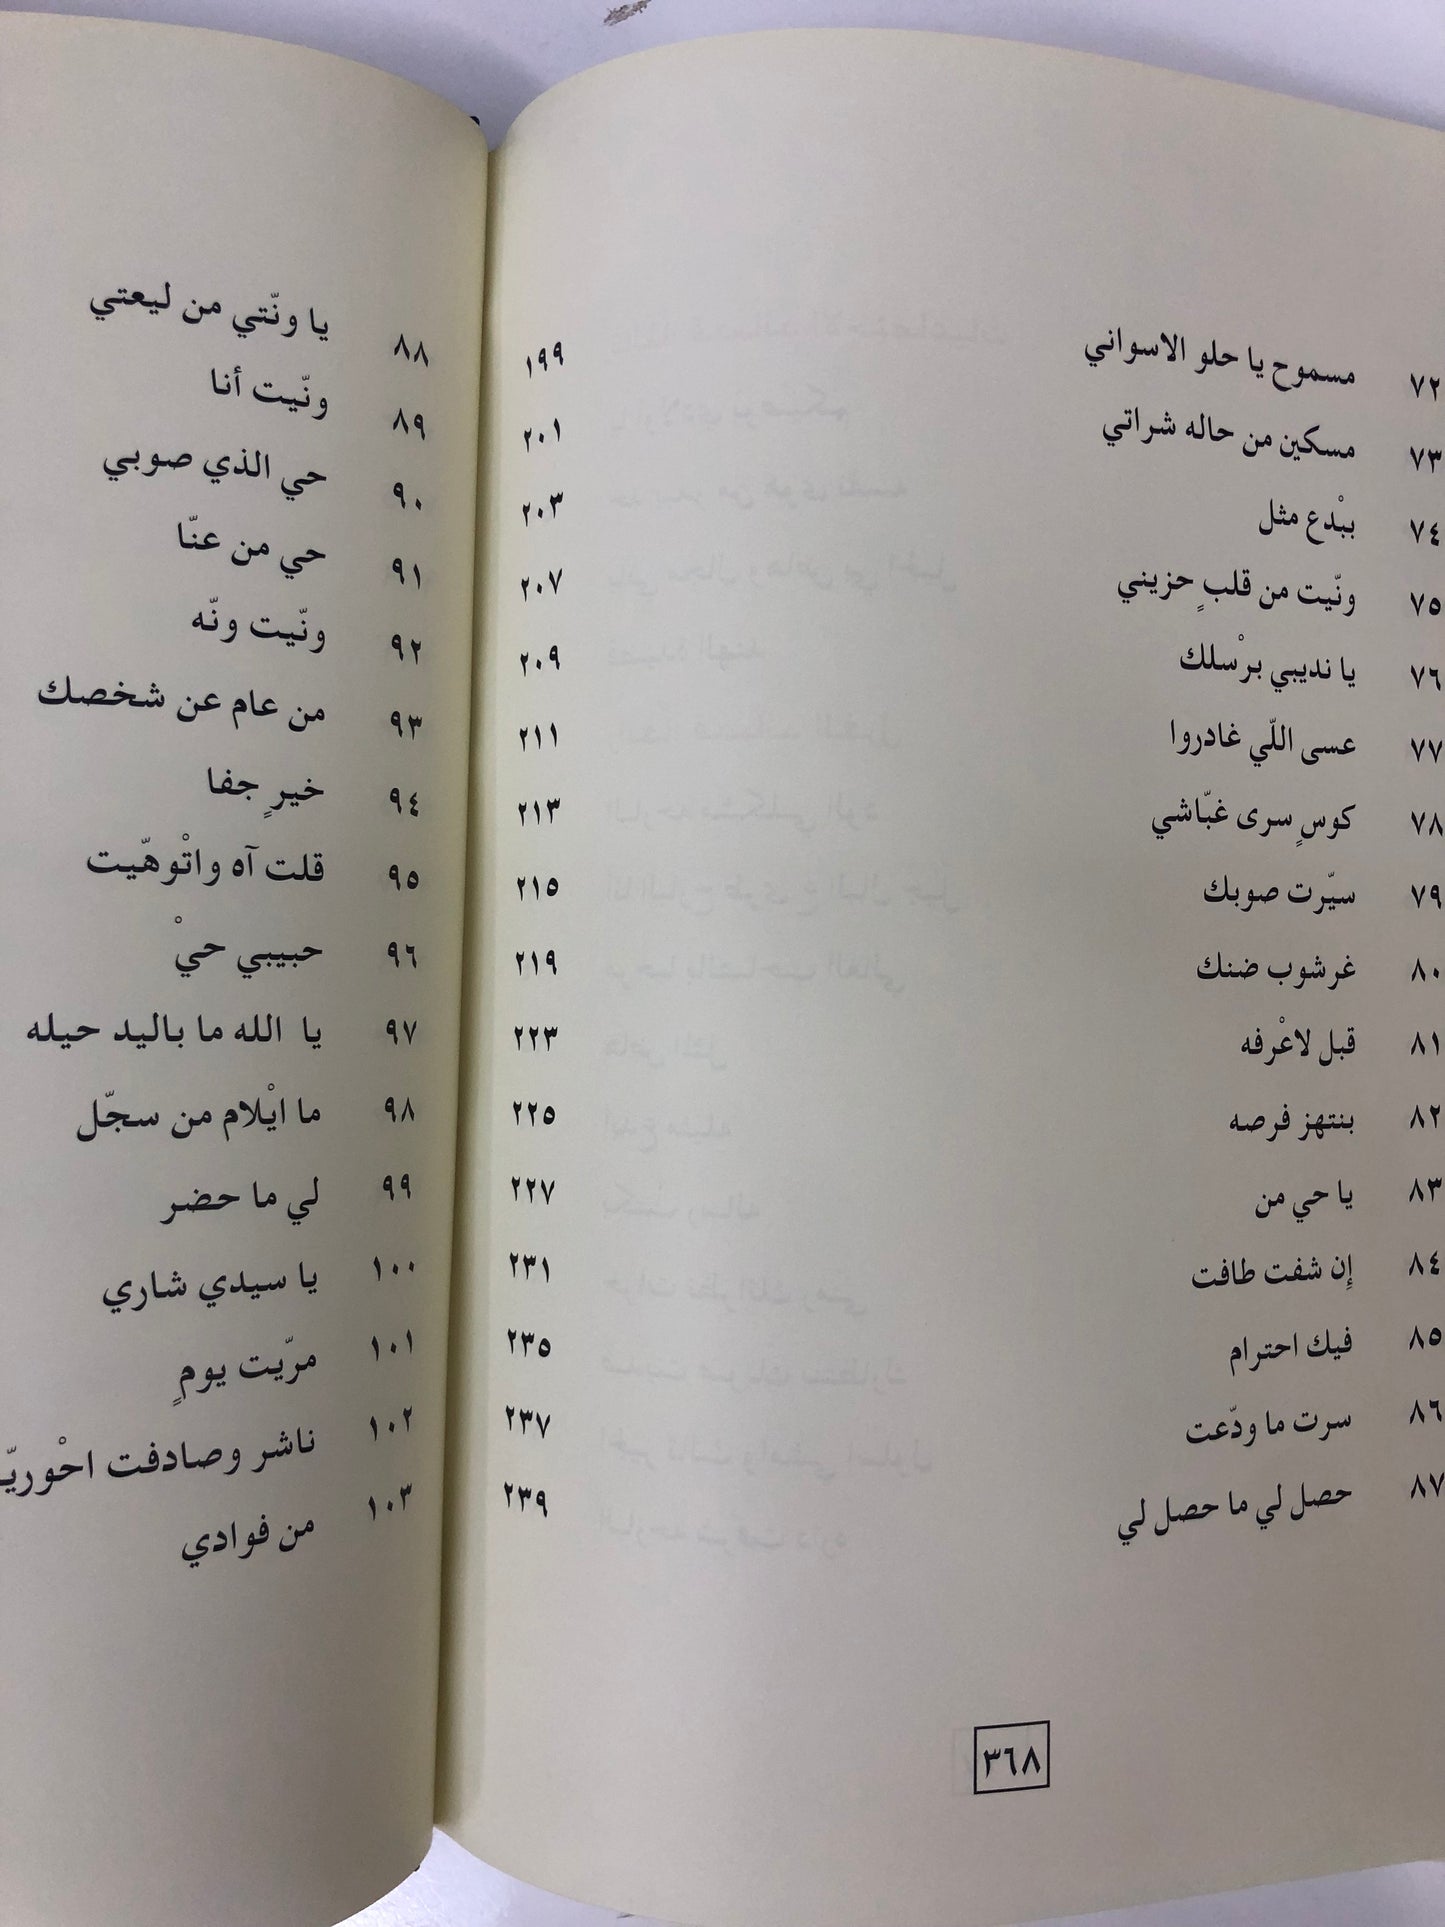 ٧٢ مسموح يا حلو الاسواني ١٩٩
٧٣ مسكين من حاله شراتي ٢٠١
٧٤ ببْدع مثل ٢٠٣
٧٥ ونّيت من قلبٍ حزيني ٢٠٧
٧٦ يا نديبي برْسلك ٢٠٩
٧٧ عسى اللّي غادروا ٢١١
٧٨ كوسٍ سرى غبّاشي ٢١٣
٧٩ سيّرت صوبك ٢١٥
٨٠ غرشوب ضنك ٢١٩
٨١ قبل لاعْرفه ٢٢٣
٨٢ بنتهز فرصه ٢٢٥
٨٣ يا حي من ٢٢٧
٨٤ إن شفت طافت ٢٣١
٨٥ فيك احترام ٢٣٥
٨٦ سرت ما ودّعت ٢٣٧
٨٧ حصل لي ما حصل لي ٢٣٩
٣٦٨
٨٨ يا ونّتي من ليعتي
٨٩ ونّيت أنا
٩٠ حي الذي صوبي
٩١ حي من عنّا
٩٢ ونّيت ونّه
٩٣ من عام عن شخصك
٩٤ خيرٍ جفا
٩٥ قلت آه واتْوهّيت
٩٦ حبيبي حيْ
٩٧ يا الله ما باليد حيله
٩٨ ما ايْلام من سجّل
٩٩ لي ما حضر
١٠٠ يا سيدي شاري
١٠١ مرّيت يومٍ
١٠٢ ناشر وصادفت
١٠٣ من فوادي